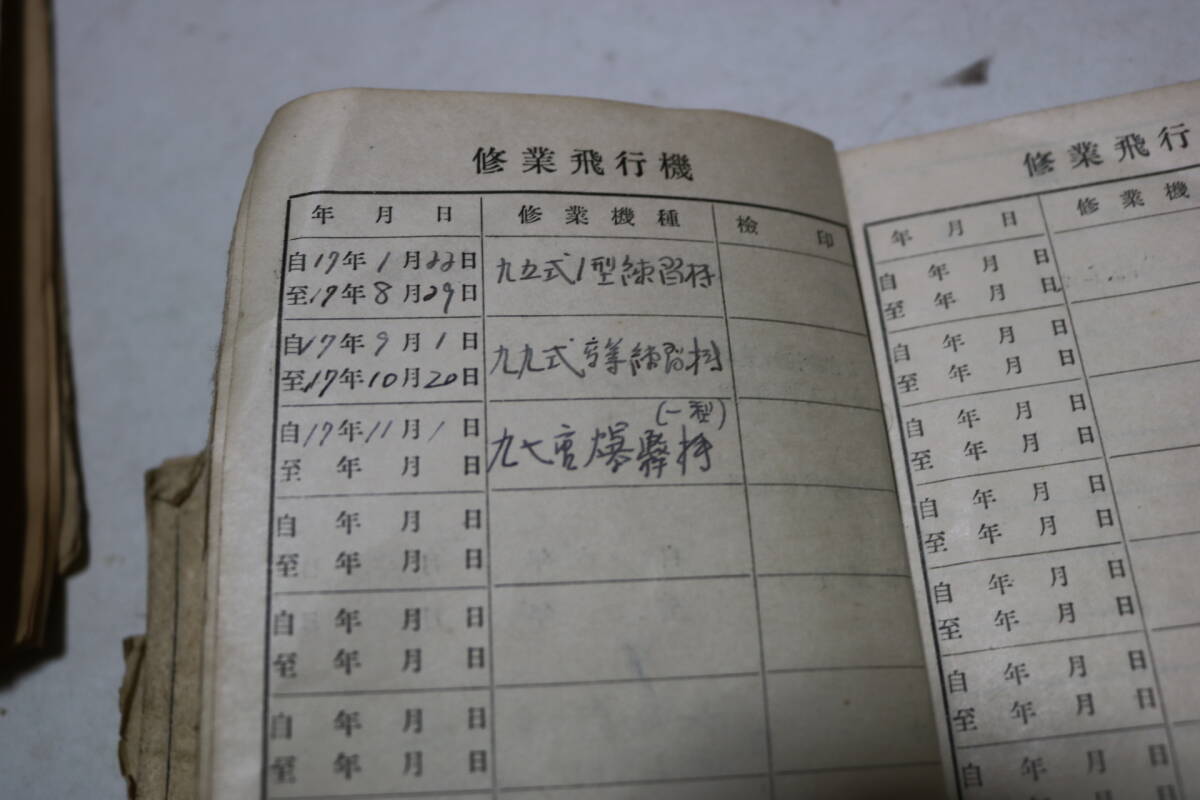 修業飛行機
年 月 日 修業機種 檢印
自17年1月22日 九五式1型練習機
至17年8月29日
自17年9月1日 九九式高等練習機
至17年10月20日
(一型)
自17年11月1日 九七重爆撃機
至 年 月 日
自 年 月 日
至 年 月 日
自 年 月 日
至 年 月 日
自 年 月 日
至 年 月 日
修業飛行
年 月 日 修業機
自 年 月 日
至 年 月 日
自 年 月 日
至 年 月 日
自 年 月 日
至 年 月 日
自 年 月 日
至 年 月 日
自 年 月 日
至 年 月 日
自 年 月 日
至 年 月 日
自 年 月 日